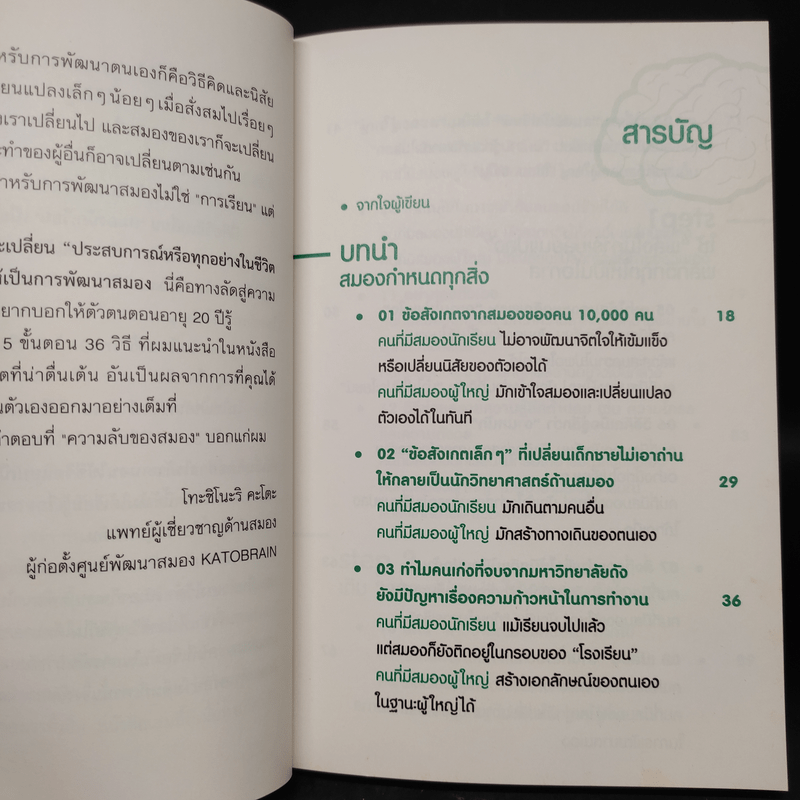 หรับการพัฒนาตนเองก็คือวิธีคิดและนิสัย
ยนแปลงเล็กๆ น้อยๆ เมื่อสั่งสมไปเรื่อยๆ
งเราเปลี่ยนไป และสมองของเราก็จะเปลี่ยน
ะทำของผู้อื่นก็อาจเปลี่ยนตามเช่นกัน
ำหรับการพัฒนาสมองไม่ใช่ "การเรียน" แต่
ะเปลี่ยน "ประสบการณ์หรือทุกอย่างในชีวิต
ป็นการพัฒนาสมอง นี่คือทางลัดสู่ความ
ยากบอกให้ตัวตนตอนอายุ 20 ปีรู้
5 ขั้นตอน 36 วิธี ที่ผมแนะนำในหนังสือ
ตที่น่าตื่นเต้น อันเป็นผลจากการที่คุณได้
นตัวเองออกมาอย่างเต็มที่
ำตอบที่ "ความลับของสมอง" บอกแก่ผม
โทะชิโนะริ คะโตะ
แพทย์ผู้เชี่ยวชาญด้านสมอง
ผู้ก่อตั้งศูนย์พัฒนาสมอง KATOBRAIN
สารบัญ
• จากใจผู้เขียน
บทนำ
สมองกำหนดทุกสิ่ง
• 01 ข้อสังเกตจากสมองของคน 10,000 คน 18
คนที่มีสมองนักเรียน ไม่อาจพัฒนาจิตใจให้เข้มแข็ง
หรือเปลี่ยนนิสัยของตัวเองได้
คนที่มีสมองผู้ใหญ่ มักเข้าใจสมองและเปลี่ยนแปลง
ตัวเองได้ในทันที
• 02 "ข้อสังเกตเล็กๆ" ที่เปลี่ยนเด็กชายไม่เอาถ่าน
ให้กลายเป็นนักวิทยาศาสตร์ด้านสมอง 29
คนที่มีสมองนักเรียน มักเดินตามคนอื่น
คนที่มีสมองผู้ใหญ่ มักสร้างทางเดินของตนเอง
• 03 ทำไมคนเก่งที่จบจากมหาวิทยาลัยดัง
ยังมีปัญหาเรื่องความก้าวหน้าในการทำงาน 36
คนที่มีสมองนักเรียน แม้เรียนจบไปแล้ว
แต่สมองก็ยังติดอยู่ในกรอบของ "โรงเรียน"
คนที่มีสมองผู้ใหญ่ สร้างเอกลักษณ์ของตนเอง
ในฐานะผู้ใหญ่ได้